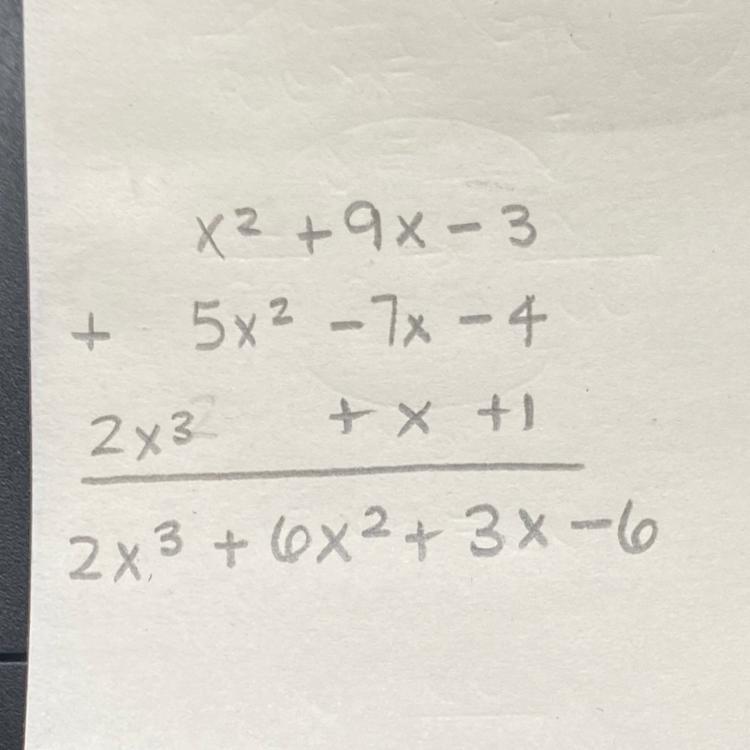 x² + 9x - 3
+ 5x² - 7x - 4
2x³ + x + 1
2x³ + 6x² + 3x - 6